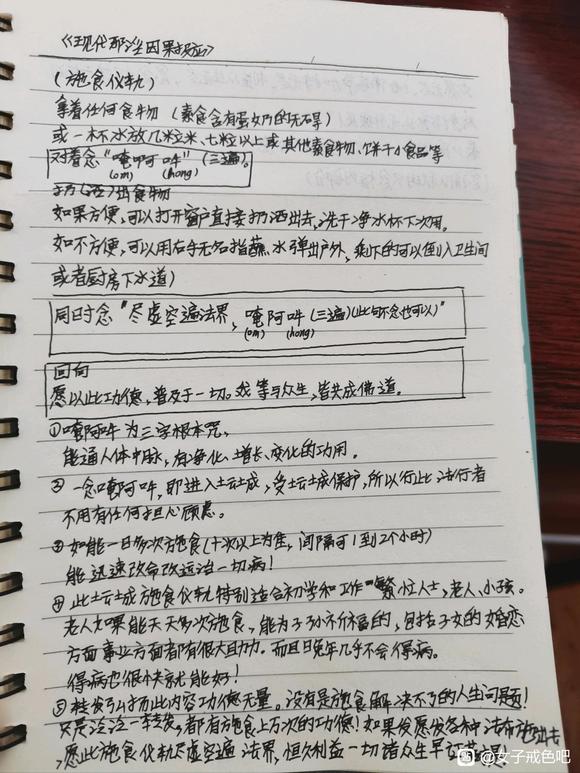 《现代邪淫因果报应》
(施食仪轨)
拿着任何食物 (素食含有蛋奶的先不算)
或一杯水放几粒米、七粒以上或其他素食物、饼干小食品等
对着念 "唵啊吽" (三遍)。
(om) (hong)
扔(洒)出食物
如果方便,可以打开窗户直接扔洒出去,洗干净水杯下次用。
如不方便,可以用右手无名指蘸水弹出户外,剩下的可以倒入卫生间
或者厨房下水道)
同时念 "尽虚空遍法界,唵阿吽 (三遍)(此句不念也可以)"
(om) (hong)
回向
愿以此功德,普及于一切。我等与众生,皆共成佛道。
①唵阿吽为三字根本咒,
能通人体中脉,有净化、增长、变化的功用。
② 一念唵啊吽,即进入坛城,受坛城保护,所以行此法行者
不用有任何担心顾虑。
③ 如能一日多次施食(十次以上为佳,间隔可1到2个小时)
能迅速改命改运治一切病!
④ 此坛城施食仪轨特别适合初学和工作繁忙人士,老人、小孩。
老人如果能天天多次施食,能为子孙积福的,包括子女的婚恋
方面事业方面都有很大助力。而且日晚年几乎不会得病。
得病也很快就能好!
⑤ 转发弘扬此内容功德无量。没有是施食解决不了的人生问题!
只是这一转发,都有施食上万次的功德!如果发愿发各种法布施出去
,愿此施食仪轨尽虚空遍法界,恒久利益一切诸众生早
@女子戒色吧